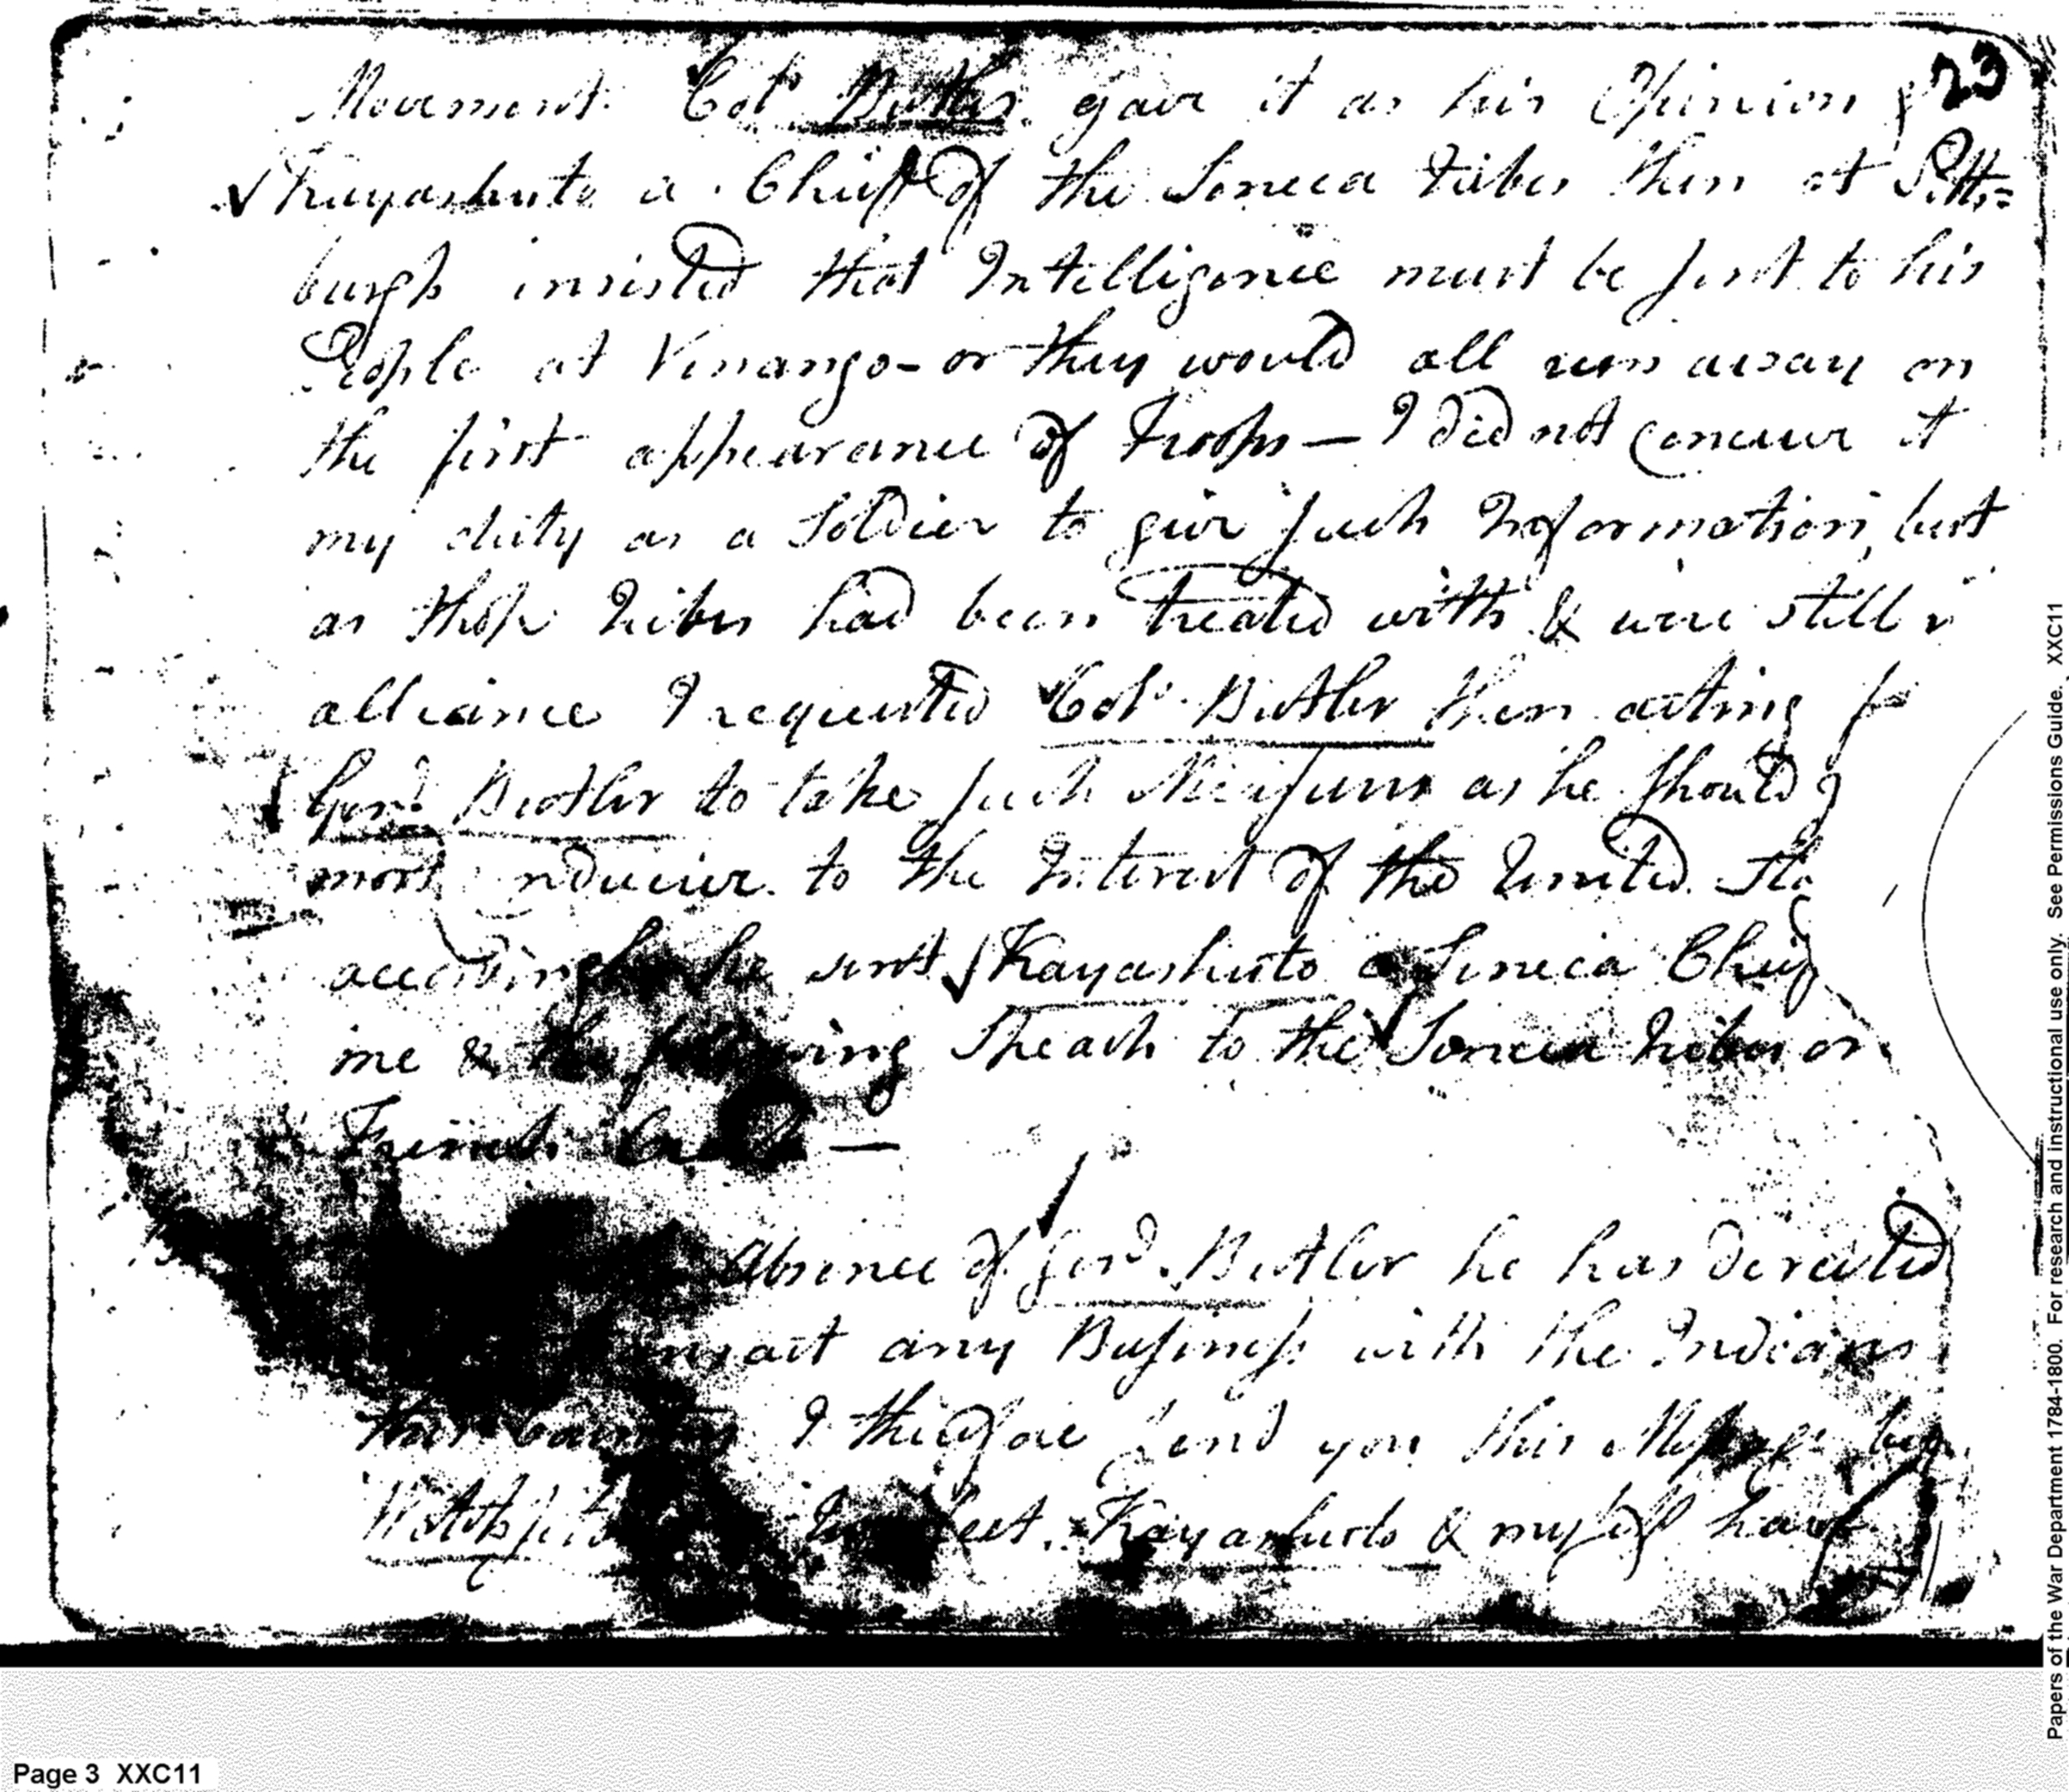 23
Movement. Colo. Butler gave it as his Opinion &
Kayashuto a Chief of the Seneca tribes then at Pitts=
burgh insisted that Intelligence must be sent to his
People at Venango - or they would all run away on
the first appearance of Troops — I did not conceive it
my duty as a Soldier to give such Information, but
as those tribes had been treated with & were still
alliance I requested Colo. Butler then acting for
Genl. Butler to take such Measures as he should
most nducive to the Interest of the United Sta
accordingly he sent Kayashuto a Seneca Chief
me & the following Speach to the Seneca tribes on
French Creek —
Absence of Genl. Butler he has directed
ansact any Business with the Indians
I therefore send you this Message by
Kayashuto & myself have
Papers of the War Department 1784-1800. For research and instructional use only. See Permissions Guide. XXC11
Page 3 XXC11